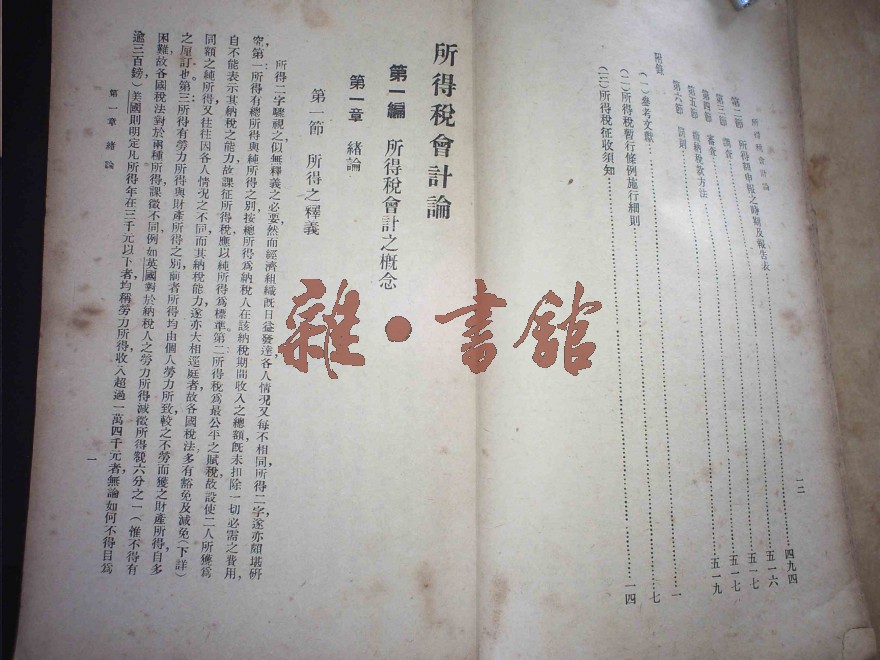 所得稅會計論
一二
第二節 所得額申報之時期及報告表……四九四
第三節 調查……五一六
第四節 審查……五一七
第五節 繳納稅款方法……五一七
第六節 罰則……五一九
附錄
(一)參考文獻……一
(二)所得稅暫行條例施行細則……七
(三)所得稅征收須知……一四
所得稅會計論
第一編 所得稅會計之概念
第一章 緒論
第一節 所得之釋義
所得二字驟視之,似無釋義之必要然而經濟組織旣日益發達,各人情況又每不相同,所得二字遂亦頗堪硏
究。第一所得有總所得與純所得之別,按總所得爲納稅人在該納稅期間收入之總額,旣未扣除一切必需之費用,
自不能表示其納稅之能力,故課征所得稅,應以純所得爲標準。第二所得稅爲最公平之賦稅,故設使二人所獲爲
同額之純所得,又往往因各人情況之不同,而其納稅能力,遂亦大相逕庭者,故各國稅法多有豁免及減免(下詳)
之厘訂也。第三所得有勞力所得與財產所得之別,前者所得均由個人勞力所致,較之不勞而獲之財產所得,自多
困難,故各國稅法對於兩種所得課徵不同,例如英國對於納稅人之勞力所得減徵所得額六分之一(惟不得有
逾三百鎊)美國則明定凡所得年在三千元以下者,均稱勞力所得,收入超過一萬四千元者,無論如何不得目爲
第一章 緒論
一
雜·書館